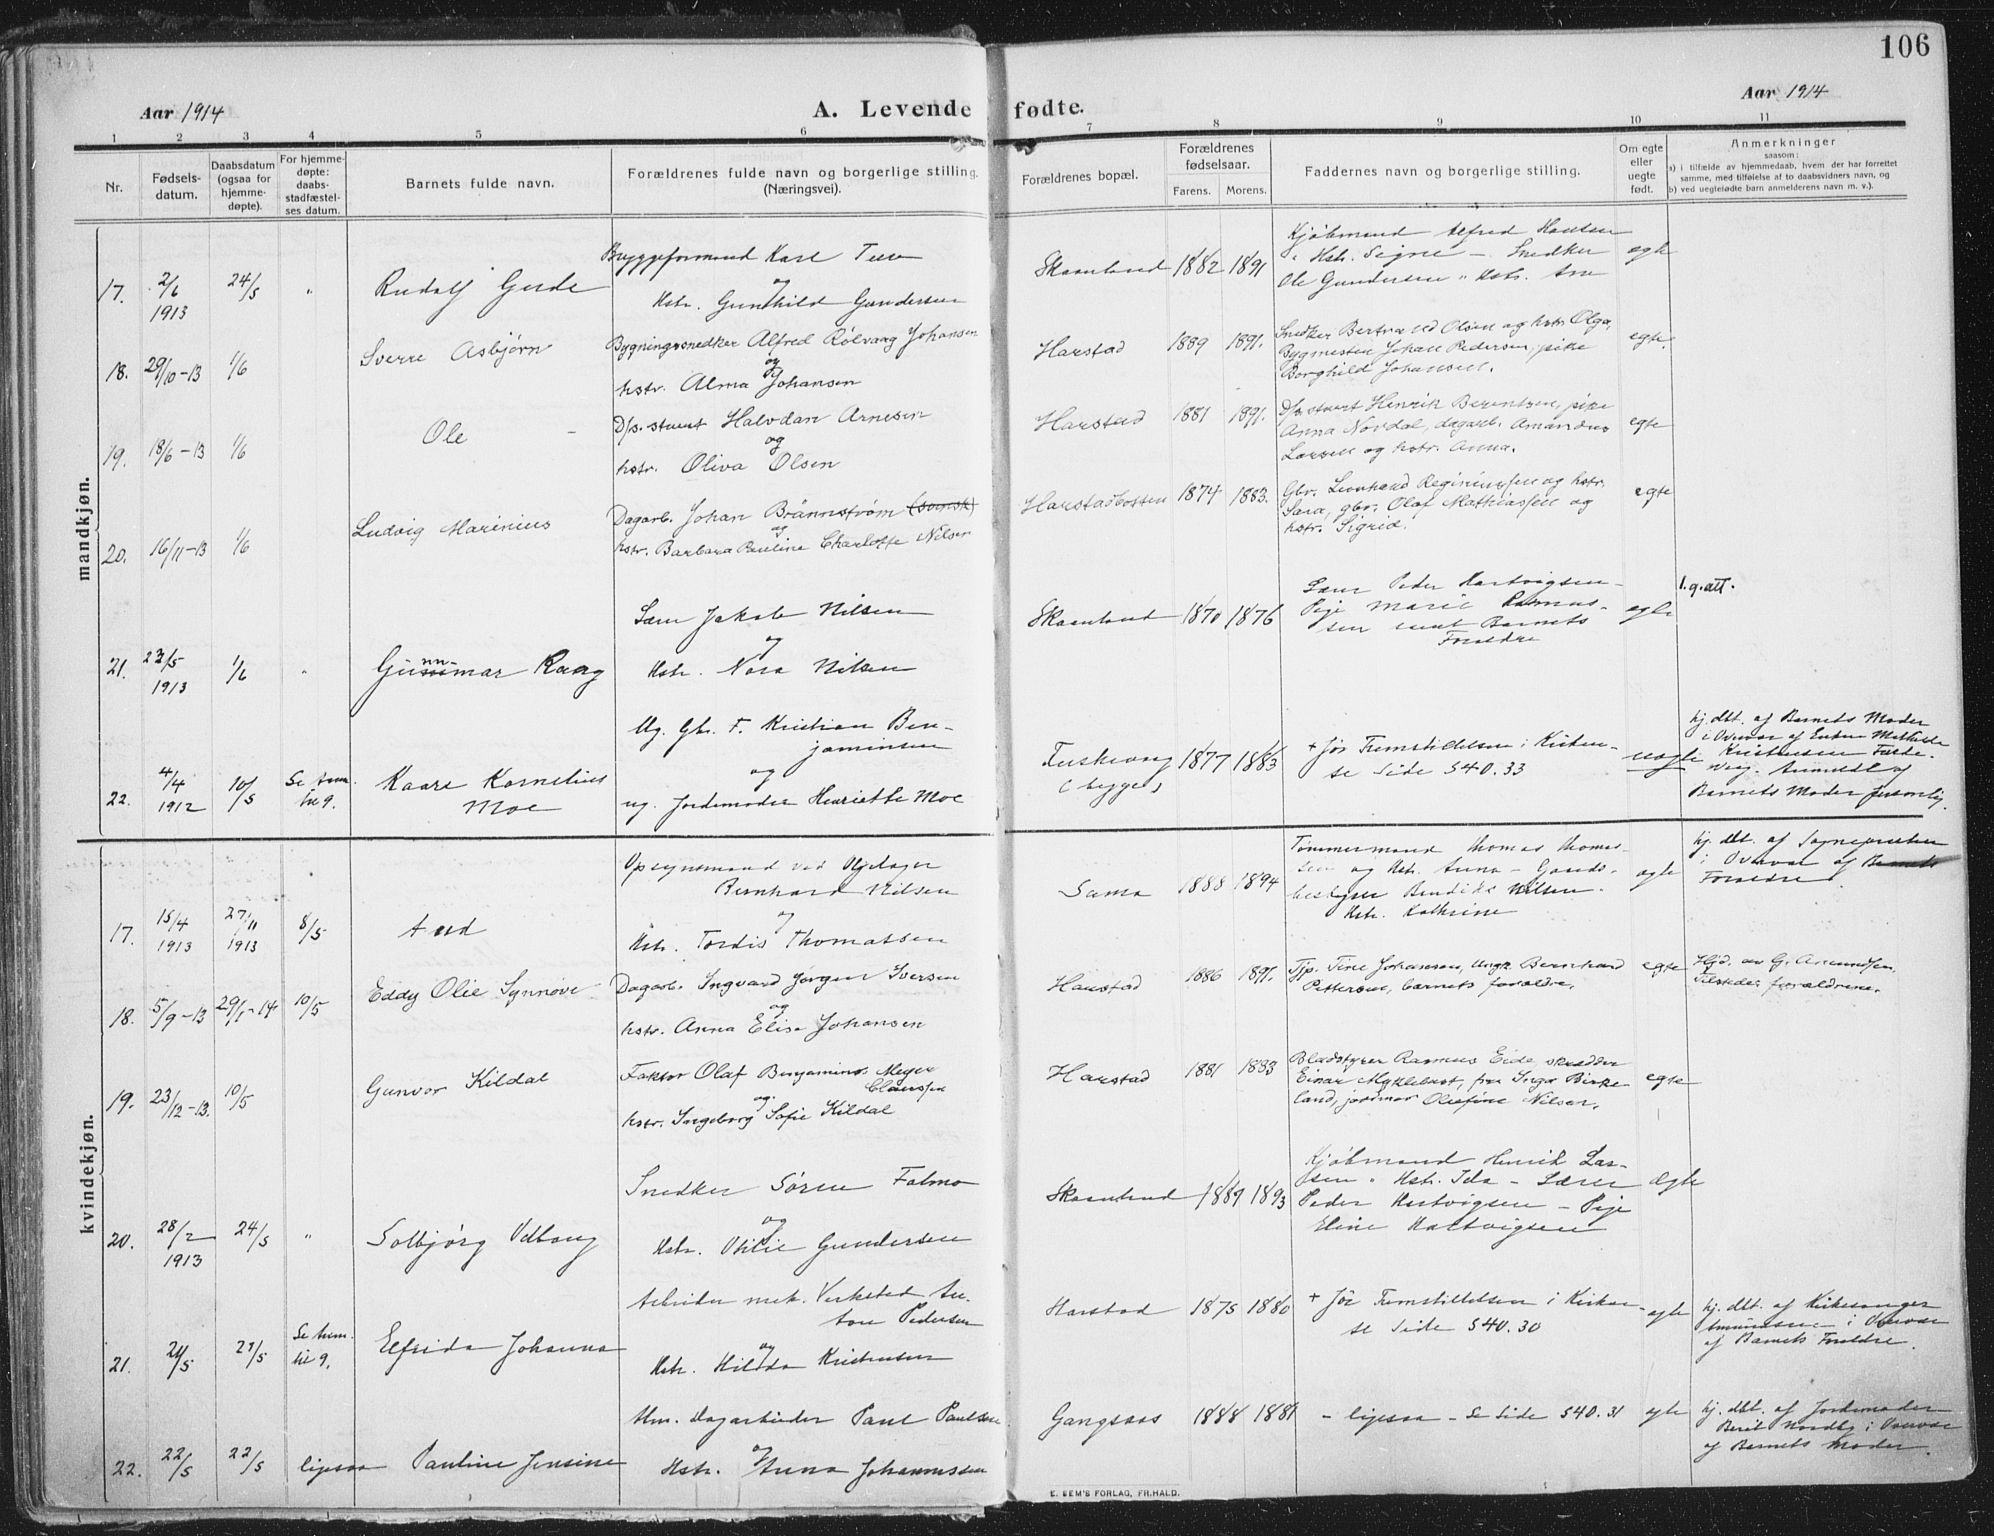 106
Aar 1914
A. Levende fødte.
Aar 1914
1 2 3 4 5 6 7 8 9 10 11
Nr.
Fødsels-
datum.
Daabsdatum
(ogsaa for
hjemme-
døpte).
For hjemme-
døpte:
daabs-
stadfæstel-
ses datum.
Barnets fulde navn.
Forældrenes fulde navn og borgerlige stilling.
(Næringsvei).
Forældrenes bopæl.
Forældrenes
fødselsaar.
Farens. Morens.
Faddernes navn og borgerlige stilling.
Om egte
eller
uegte
født.
Anmerkninger
saasom:
a) i tilfælde av hjemmedaab, hvem der har forrettet
samme, med tilføielse af to daabsvidners navn, og
b) ved uegtefødte barn anmelderens navn m. v.).
mandkjøn.
17. 2/6 1913 24/5 " Rudolf Gerde
Byggeformand Karl
og
Hstr. Gunhild Gundersen
Skaanland 1882 1891
Kjøbmand Alfred Hansen
" Hstr. Signe - Snedker
Ole Gundersen " Hstr. Ane
egte
18. 29/10-13 1/6 Sverre Asbjørn
Bygningssnedker Alfred Rølvaag Johansen
og
hstr. Alma Johansen
Harstad 1889 1891.
Snedker Bertra nd Olsen og hstr. Olga,
Bygmester Johan Pedersen, pike
Borghild Johansen.
egte.
19. 18/6-13 1/6 Ole -
D/s. stuert Halvdan Arnesen
og
hstr. Oliva Olsen
Harstad 1881 1891.
D/s. stuert Henrik Berentsen, pike
Anna Novdal, dagarb. Amandus
Larsen og hstr. Anna.
egte
20. 16/11-13 1/6 Ludvig Marinius
Dagarb. Johan Brännström (svensk)
og
hstr. Barbara Pauline Charlotte Nilsen
Harstadbotten 1874 1883.
Gbr. Leonhard Reginiussen og hstr.
Sara, gbr. Olaf Mathiassen og
hstr. Sigrid.
egte
21. 23/5 1913 1/6 " Gunnmar Raag
nn
Lærer Jakob Nilsen
og
Hstr. Nora Nilsen
Skaanland 1870 1876
Lærer Peder Hartvigsen -
Pige Marie Rasmus-
sen samt Barnets
Foreldre
egte
1.g.att.
22. 4/4 1912 10/5 Se Anm.
til 9.
Kaare Kornelius
Moe
Ug. Gbr. F. Kristian Ben-
jaminsen
og
ug. Jordemoder Henriette Moe
(begge) 1877 1883
+ for Fremstillelsen i Kirken -
se Side 540.33
uegte
hj. dbt. af Barnets Moder
i Overvær af Enken Mathilde
Kristensen
Anmeldt af
Barnets Moder personlig.
kvindekjøn.
17. 15/4 1913 27/11 1913 8/5 Aud
Opsynsmand ved Oljelager
Bernhard Nilsen
og
Hstr. Tordis Thomassen
Sama 1888 1894
Tømmermand Thomas Thomas-
sen og Hstr. Anna - Gaards-
bestyrer Bendiks Nilsen -
Hstr. Kathrine
egte
hj. dbt. af Sognepresten
i Overvær af Barnets
Foreldre.
18. 5/9-13 29/1-14 10/5 Eddy Olie Synnøve
Dagarb. Ingvard Jørgen Iversen
og
hstr. Anna Elise Johansen
Harstad 1886 1891.
Tjp. Tine Johansen, ungk. Bernhard
Pettersen, barnets forældre.
egte
Hjd. av G. Amundsen.
Tilstede: forældrene.
19. 23/12-13. 10/5 Gunvor Kildal
Faktor Olaf Benjamins. Meyer
Claussen
og
hstr. Ingeborg Sofie Kildal
Harstad 1881 1883
Bladstyrer Rasmus Eide, skrædder
Einar Myklebust, fru Inga Birke
land, jordmor Olefine Nilsen.
egte
20. 28/2 1913 24/5 " Solbjørg
Snedker Søren Falmo
og
Hstr. Otilie Gundersen
Skaanland 1889 1893
Kjøbmand Henrik Lar-
sen " Hstr. Ida - Lærer
Peder Hartvigsen - Pige
Eline Hartvigsen
Egte
21. 21/5 Se Anm.
til 9.
Elfrida Johanna
Arbeider mek. Verksted An-
ton Pedersen
og
Hstr. Hilda Kristensen
Harstad 1875 1880
+ for Fremstillelsen i Kirken -
se Side 540.30
egte
hj. dbt. af Kirkesanger
Amundsen i Overvær
af Barnets Foreldre.
22. 22/5 22/5 ligesaa Pauline Jensine
Dagarbeider Paul Paulsen
og
Hstr. Anna Johannessen
Gangsaas 1888 1881
- ligesaa - Se Side 540.31
egte
hj. dbt. af Jordemoder
Berit Nordby i Overvær
af Barnets Moder.
E. SEM'S FORLAG, FR.HALD.